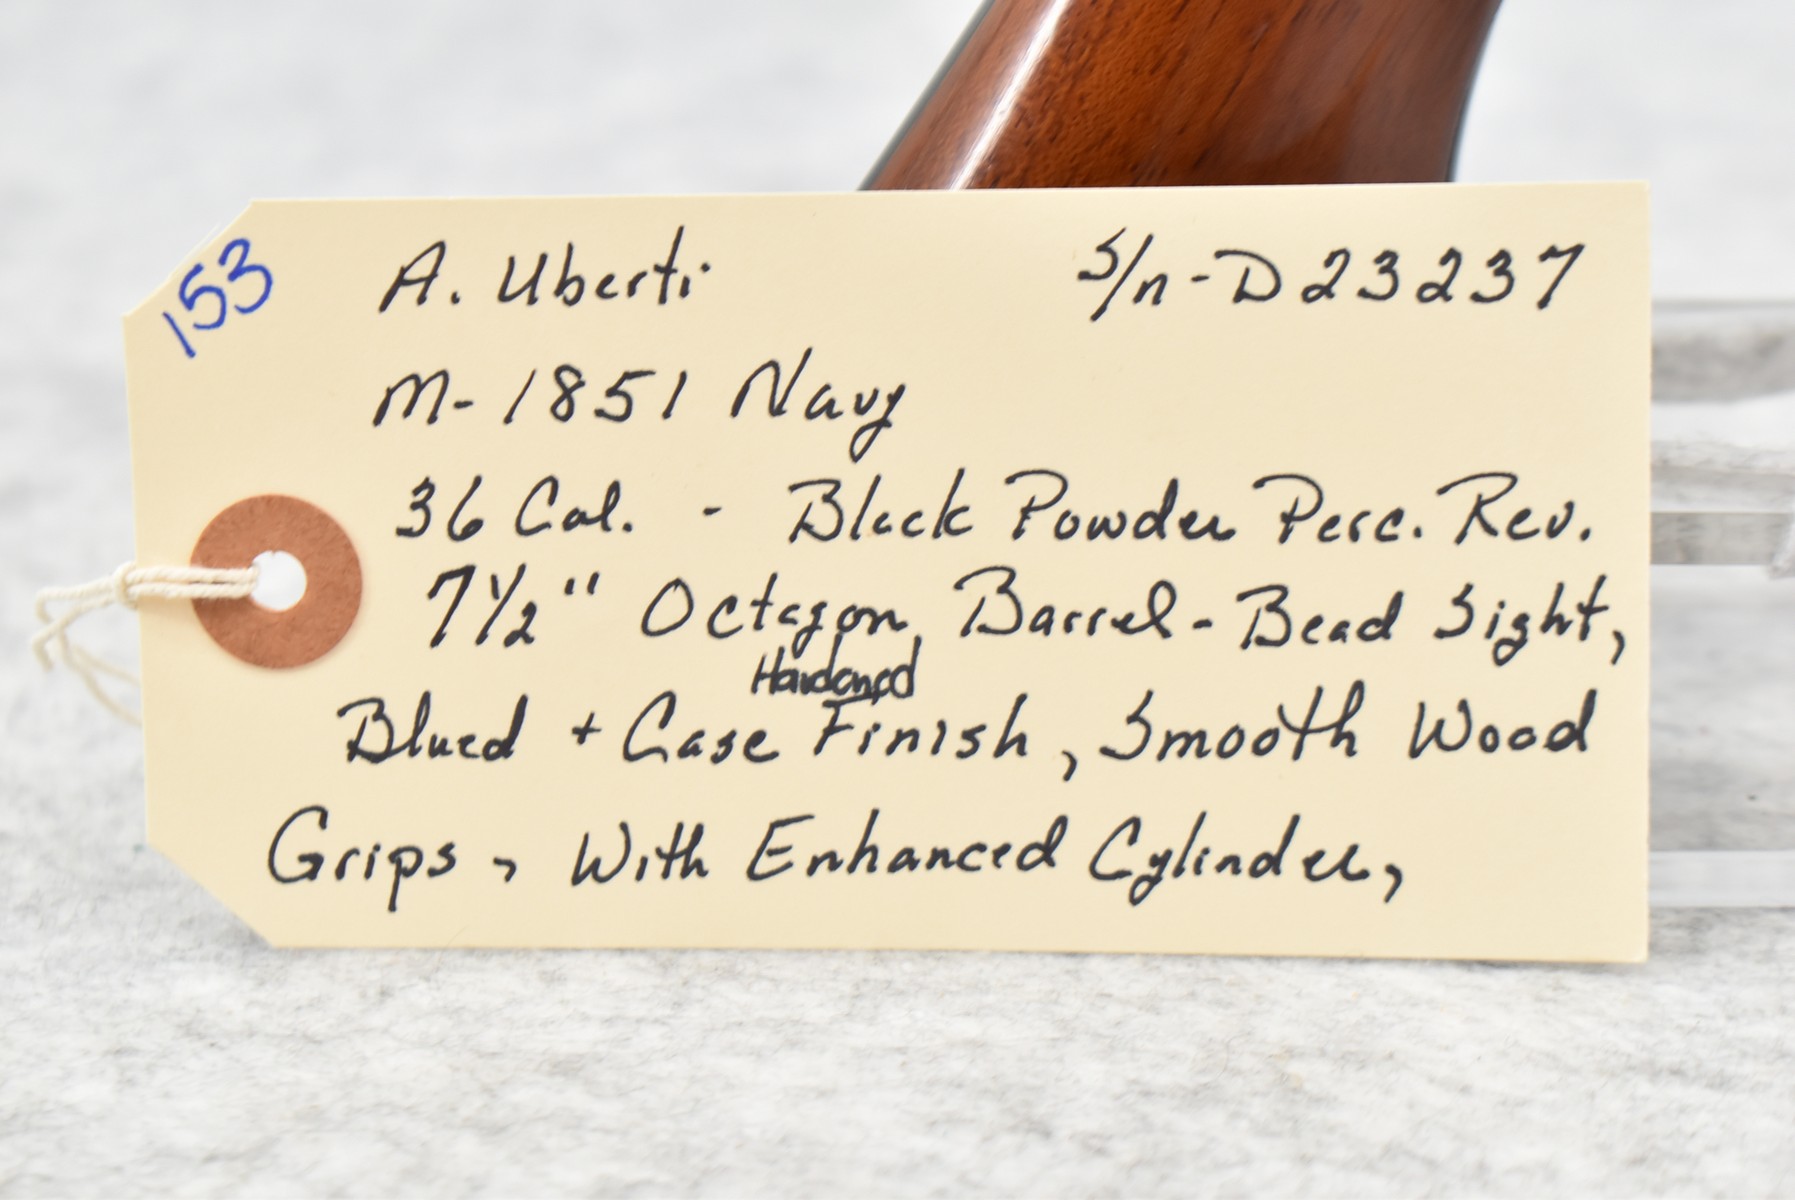 153
A. Uberti S/n - D23237
M-1851 Navy
36 Cal. - Black Powder Perc. Rev.
7½" Octagon Barrel - Bead Sight,
Hardened
Blued + Case Finish, Smooth Wood
Grips, With Enhanced Cylinder,